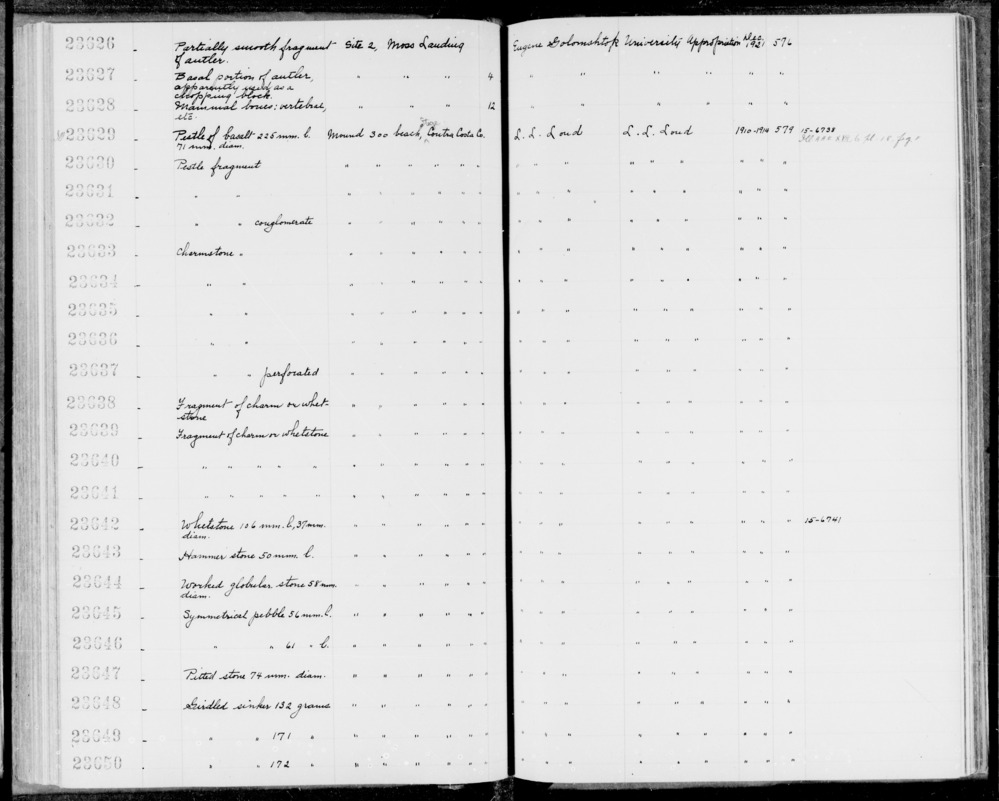 23626 - Partially smooth fragment Site 2, Moss Landing Eugene Golomshtok University Appropriation Dec. 1921 576
of antler.
23627 - Basal portion of antler, " " " 4 " " " " " " "
apparently used as a
chopping block.
23628 - Mammal bones: vertebrae, " " " 12 " " " " " " "
etc.
23629 - Pestle of basalt 225 mm. l. Mound 300 beach, Contra Costa Co. L. L. Loud L. L. Loud 1910-1914 579 15-6738
71 mm. diam.
23630 - Pestle fragment " " " " " " " " " " " " " " "
23631 - " " " " " " " " " " " " " " " " "
23632 - " " conglomerate " " " " " " " " " " " " " " "
23633 - Charmstone " " " " " " " " " " " " " " " "
23634 - " " " " " " " " " " " " " " " " "
23635 - " " " " " " " " " " " " " " " " "
23636 - " " " " " " " " " " " " " " " " "
23637 - " " perforated " " " " " " " " " " " " " " "
23638 - Fragment of charm or whet- " " " " " " " " " " " " " " "
stone
23639 - Fragment of charm or whetstone " " " " " " " " " " " " " " "
23640 - " " " " " " " " " " " " " " " " " " " "
23641 - " " " " " " " " " " " " " " " " " " " "
23642 - Whetstone 106 mm. l, 37 mm. " " " " " " " " " " " " " " " 15-6741
diam.
23643 - Hammer stone 50 mm. l. " " " " " " " " " " " " " " "
23644 - Worked globular stone 58 mm. " " " " " " " " " " " " " " "
diam.
23645 - Symmetrical pebble 56 mm. l. " " " " " " " " " " " " " " "
23646 - " " 61 " l. " " " " " " " " " " " " " " "
23647 - Pitted stone 74 mm. diam. " " " " " " " " " " " " " " "
23648 - Girdled sinker 132 grams " " " " " " " " " " " " " " "
23649 - " " 171 " " " " " " " " " " " " " " " "
23650 - " " 172 " " " " " " " " " " " " " " " "